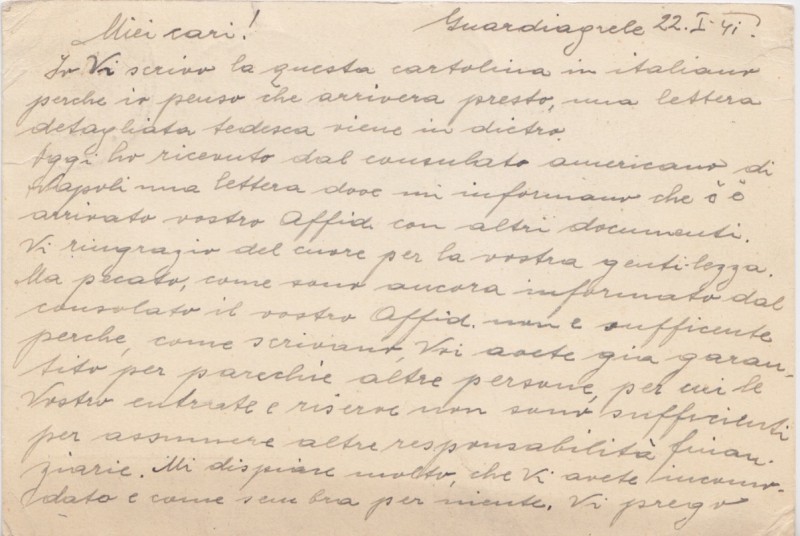 Miei cari! Guardiagrele 22.I.41.
Io Vi scrivo la questa cartolina in italiano
perche io penso che arrivera presto, una lettera
detagliata tedesca viene in dietro.
Oggi ho ricevuto dal consulato americano di
Napoli una lettera dove mi informano che è
arrivato vostro Affid. con altri documenti.
Vi ringrazio del cuore per la vostra gentilezza.
Ma pecato, come sono ancora informato dal
consolato il vostro Affid. non e sufficente
perche, come scrivano, Voi avete gia garan-
tito per parechie altre persone, per cui le
Vostro entrate e riserve non sono sufficienti
per assumere altre responsabilità finan-
ziarie. Mi dispiace molto, che Vi avete incomo-
dato e come sembra per niente. Vi prego